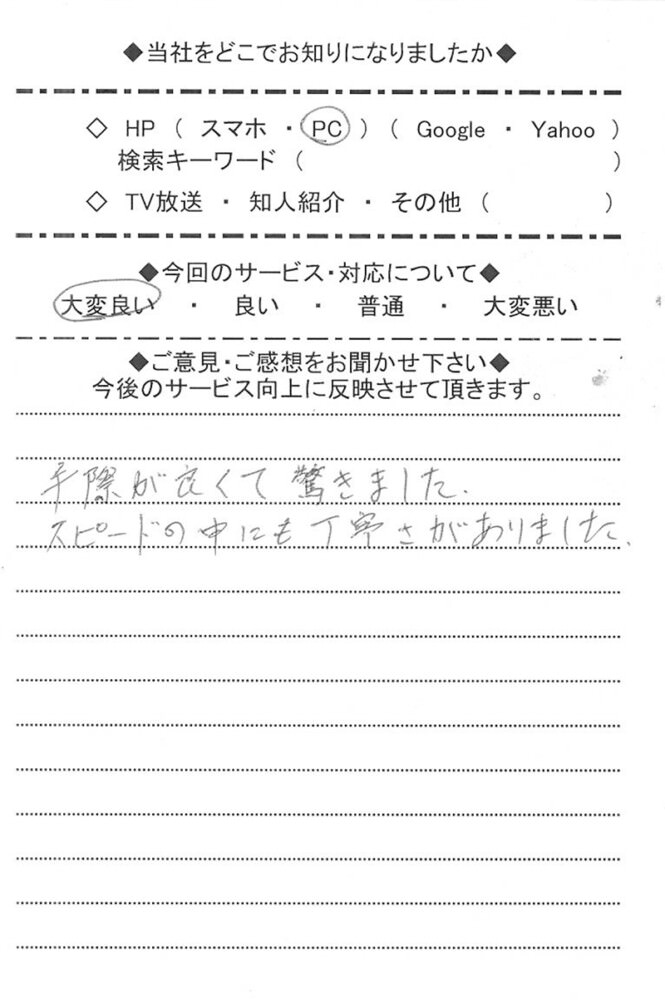 ◆当社をどこでお知りになりましたか◆
◇ HP ( スマホ ・ PC ) ( Google ・ Yahoo )
検索キーワード ( )
◇ TV放送 ・ 知人紹介 ・ その他 ( )
◆今回のサービス・対応について◆
大変良い ・ 良い ・ 普通 ・ 大変悪い
◆ご意見・ご感想をお聞かせ下さい◆
今後のサービス向上に反映させて頂きます。
手際が良くて驚きました.
スピードの中にも丁寧さがありました.